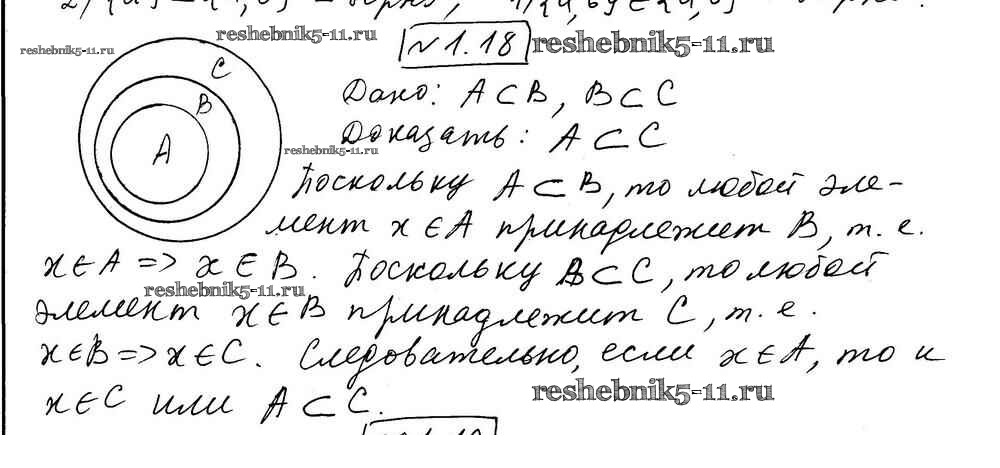 reshebnik5-11.ru
reshebnik5-11.ru
№1.18 reshebnik5-11.ru
C
B
A
Дано: A⊂B, B⊂C
Доказать: A⊂C
reshebnik5-11.ru
Поскольку A⊂B, то любой эле-
мент x∈A принадлежит B, т.е.
x∈A => x∈B. Поскольку B⊂C, то любой
reshebnik5-11.ru
элемент x∈B принадлежит C, т.е.
x∈B => x∈C. Следовательно, если x∈A, то и
x∈C или A⊂C.
reshebnik5-11.ru